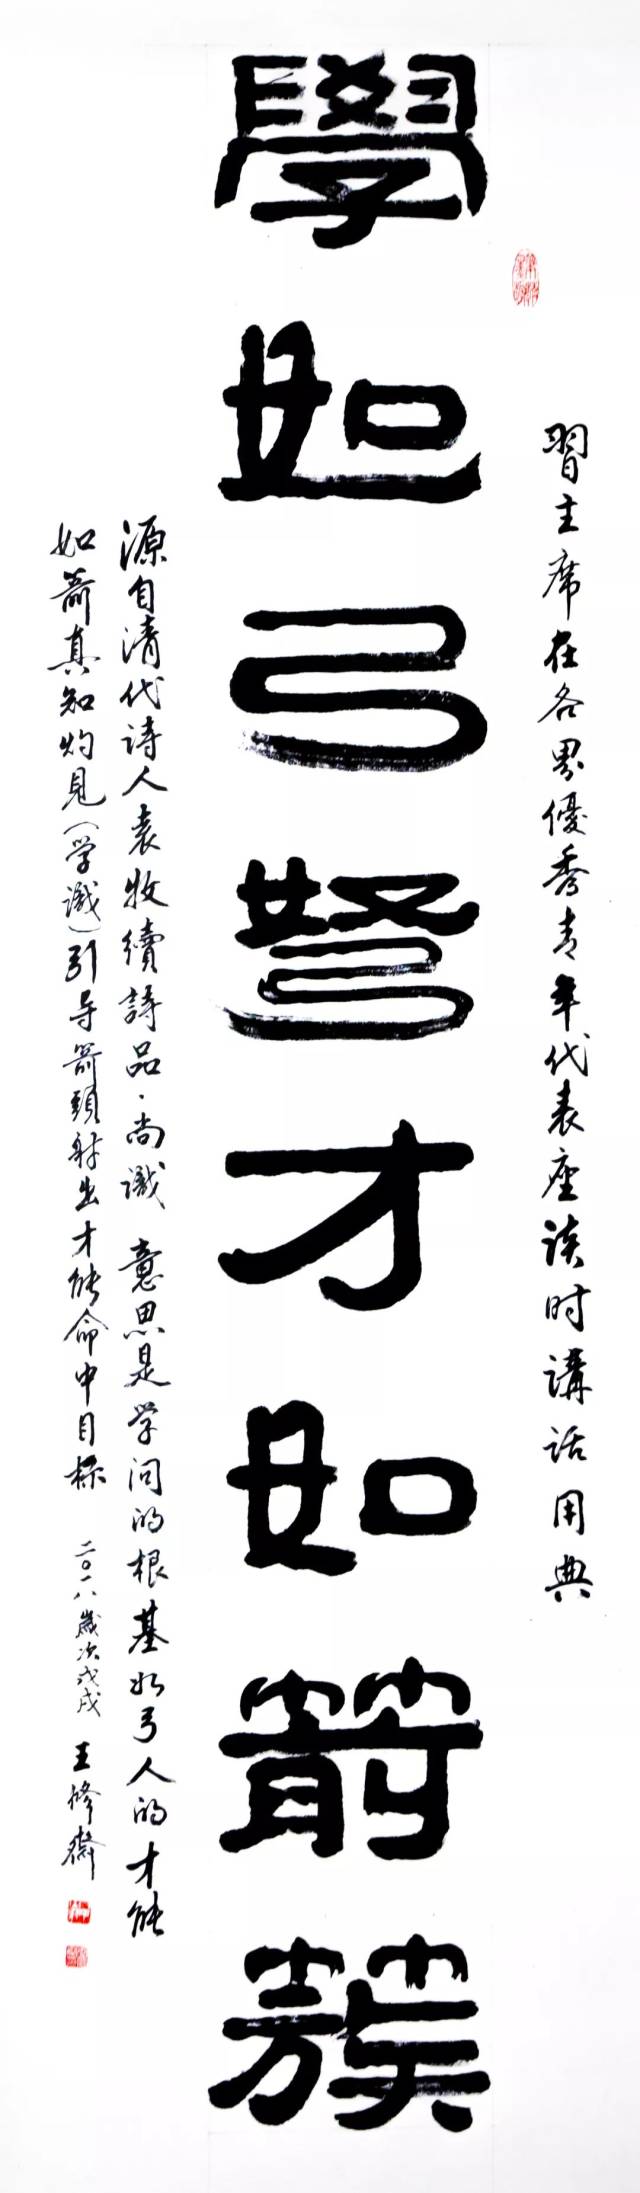 習主席在各界優秀青年代表座谈时講话用典
學如弓弩才如箭簇
源自清代诗人袁牧續詩品·尚識 意思是学问的根基如弓人的才能
如箭真知灼見(学識)引导箭頭射出才能命中目标
二〇一八歲次戊戌 王修齋